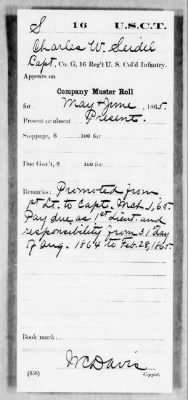 S 16 U.S.C.T.
Charles W. Seidel
Capt, Co. G, 16 Reg't U. S. Col'd Infantry.
Appears on
Company Muster Roll
for May & June, 1865.
Present or absent Present.
Stoppage, $ 100 for
Due Gov't, $ 100 for
Remarks: Promoted from
1st Lt. to Capt. Mch. 1, 65.
Pay due as 1st Lieut. and
responsibility from 31 day
of Aug. 1864 to Feb. 28, 1865.
Book mark:
McDavis
(358) Copyist.